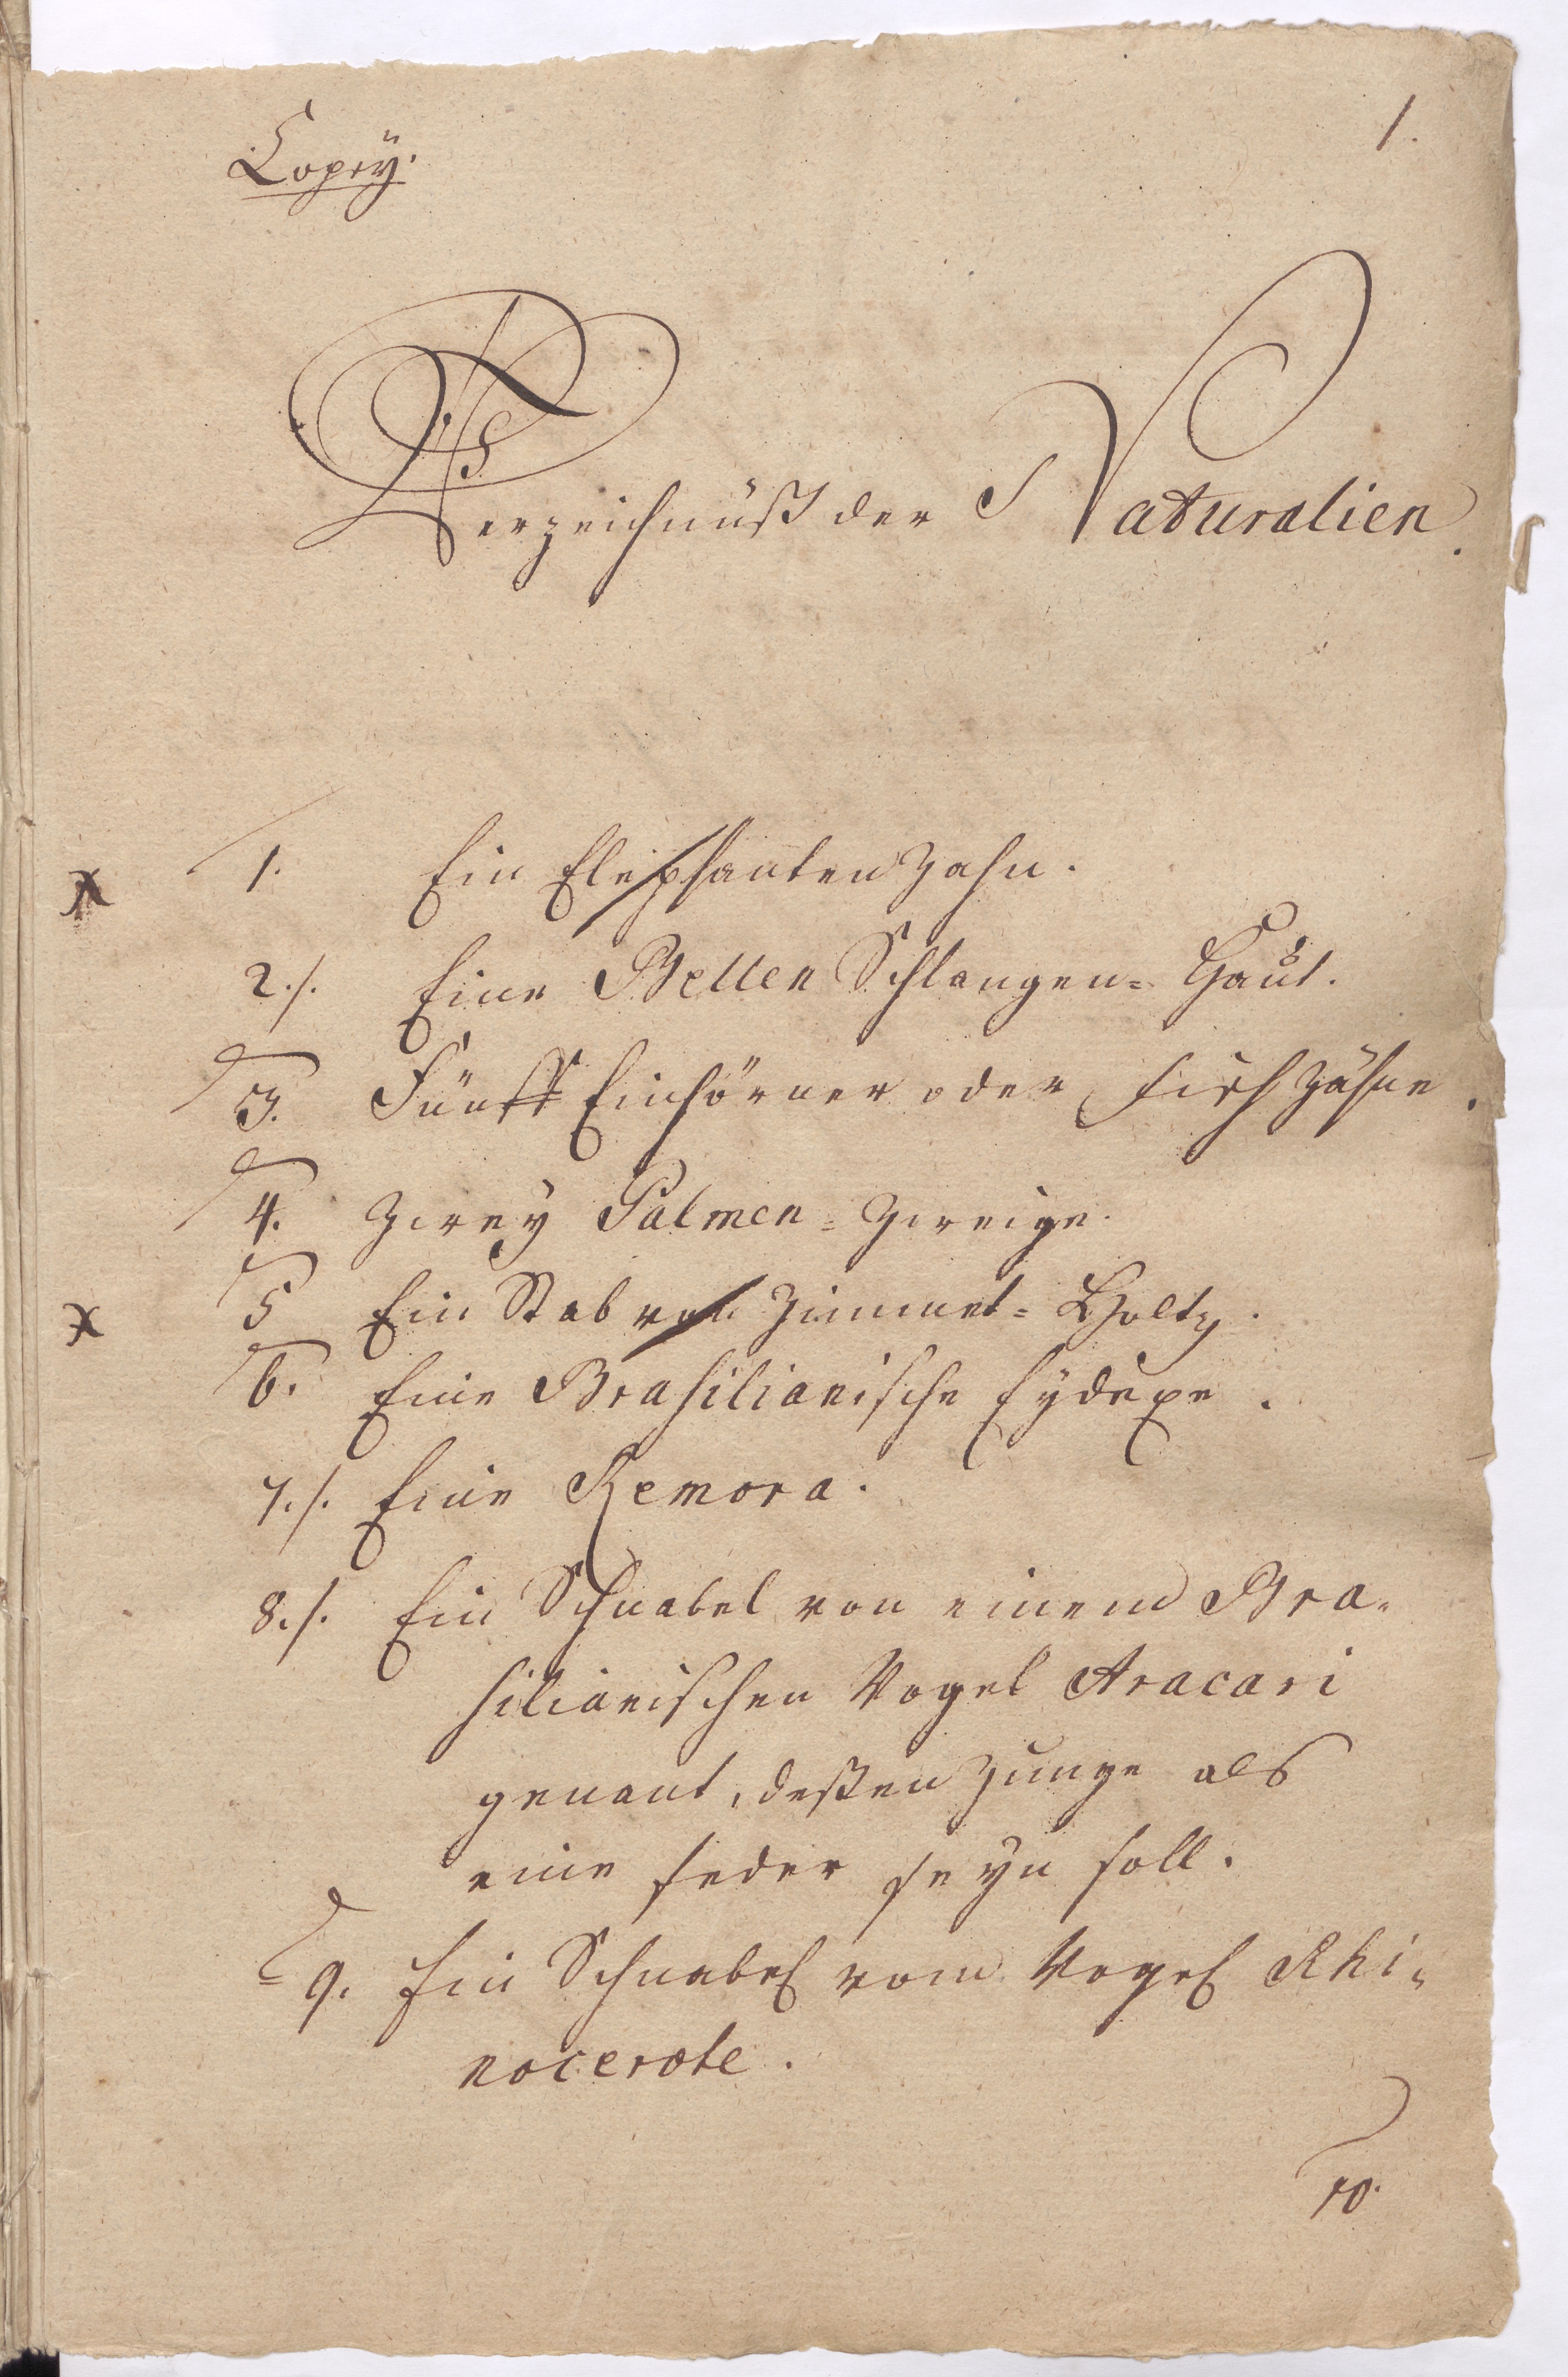 Copeÿ.
1.
Verzeichnüß der Naturalien.
x 1. Ein Elephanten Zahn.
2./. Eine Bellen Schlangen= Haut.
3. Fünff Einhörner oder Fisch Zähne.
4. Zweÿ Palmen=Zweige.
x 5 Ein Stab von Zimmet=Holtz.
6. Eine Brasilianische Eÿdexe.
7./. Eine Remora.
8./. Ein Schnabel von einem Bra=
silianischen Vogel Aracari
genant, deßen Zunge als
eine feder seyn soll.
9. Ein Schnabel vom Vogel Rhi=
nocerote.
10.